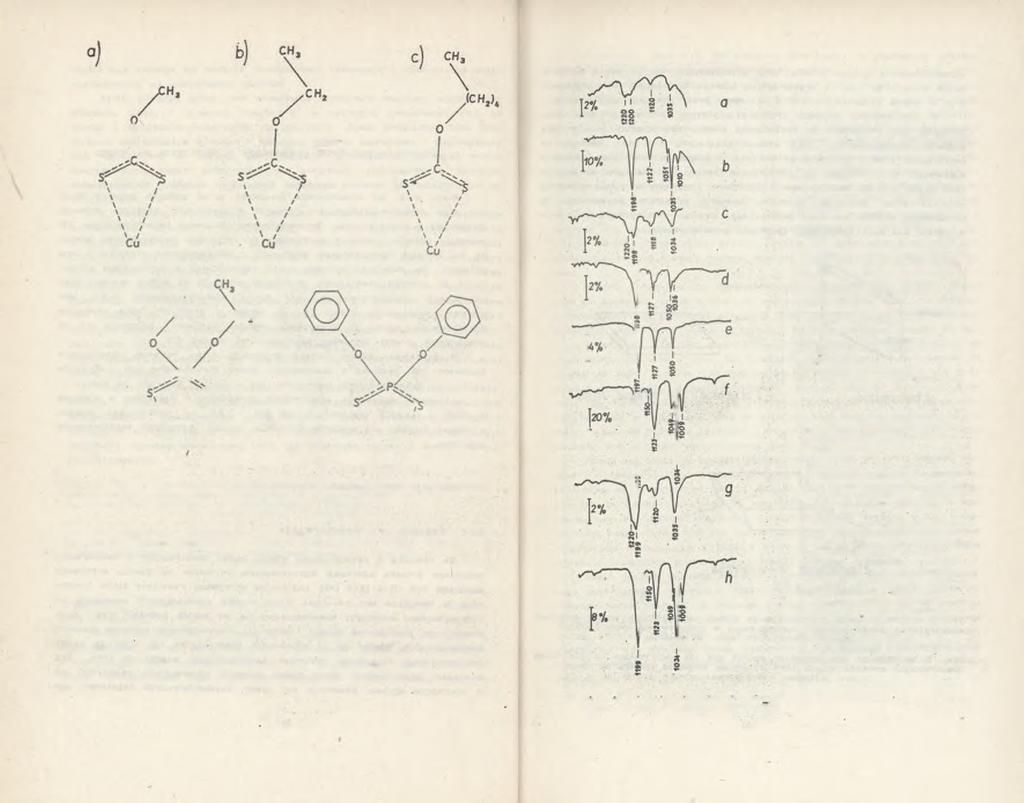 a)
b)
c)
CH₃
O
C
S
S
Cu
CH₃
CH₂
O
C
S
S
Cu
CH₃
(CH₂)₄
O
C
S
S
Cu
CH₃
O
O
S
O
O
P
S
S
2%
1220
1200
1120
1035
a
10%
1198
1122
1051
1035
1010
b
2%
1220
1198
1118
1034
c
2%
1127
1050
1036
d
4%
1197
1127
1050
e
20%
1150
1123
1049
1009
f
2%
1220
1199
1120
1035
1034
g
8%
1199
1150
1123
1049
1034
1009
h